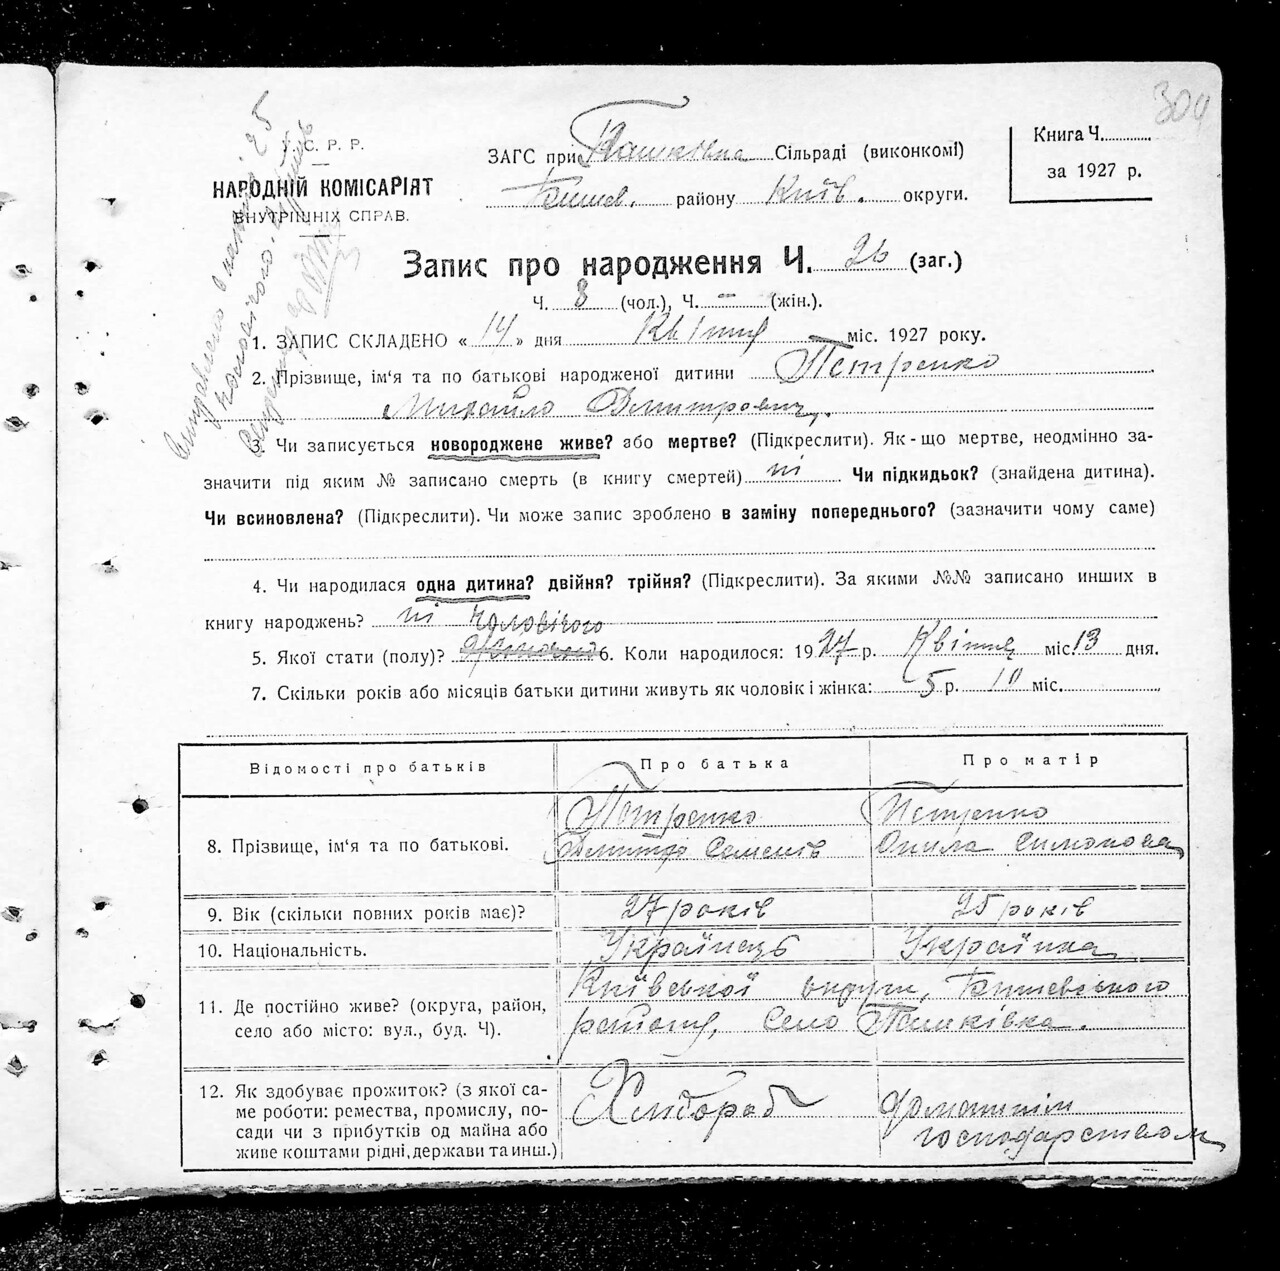 304
У. С. Р. Р.
НАРОДНІЙ КОМІСАРІЯТ
ВНУТРІШНІХ СПРАВ.
ЗАГС при Пашківка Сільраді (виконкомі)
Бишев. району Київ. округи.
Книга Ч.
за 1927 р.
Запис про народження Ч. 26 (заг.)
Ч. 8 (чол.), Ч. – (жін.).
1. ЗАПИС СКЛАДЕНО « 14 » дня Квітня міс. 1927 року.
2. Прізвище, ім‘я та по батькові народженої дитини Петренко
Михайло Дмитрович.
3. Чи записується новороджене живе? або мертве? (Підкреслити). Як-що мертве, неодмінно за-
значити під яким № записано смерть (в книгу смертей) ні Чи підкидьок? (знайдена дитина).
Чи всиновлена? (Підкреслити). Чи може запис зроблено в заміну попереднього? (зазначити чому саме)
4. Чи народилася одна дитина? двійня? трійня? (Підкреслити). За якими №№ записано инших в
книгу народжень? ні
чоловічого
5. Якої стати (полу)? 6. Коли народилося: 1927 р. Квітня міс 13 дня.
7. Скільки років або місяців батьки дитини живуть як чоловік і жінка: 5 р. 10 міс.
Відомості про батьків Про батька Про матір
8. Прізвище, ім‘я та по батькові. Петренко Дмитро Семенів Петренко Онила Симонова
9. Вік (скільки повних років має)? 27 років 25 років
10. Національність. Українець Українка
11. Де постійно живе? (округа, район, Київської округи, Бишевського
село або місто: вул., буд. Ч). району, село Пашківка.
12. Як здобуває прожиток? (з якої са- Хлібороб Домашнім
ме роботи: ремества, промислу, по- господарством
сади чи з прибутків од майна або
живе коштами рідні, держави та инш.)